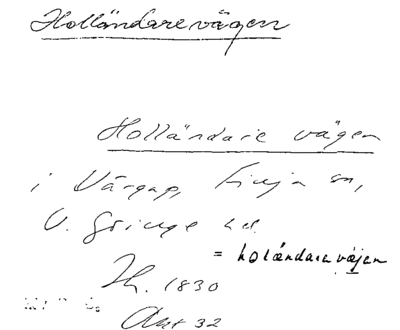 Holländarevägen
Holländare vägen
i Vårgap, Finja sn,
V. Göinge hd.
= holándarevä̀jen
Jh. 1830
Ant 32